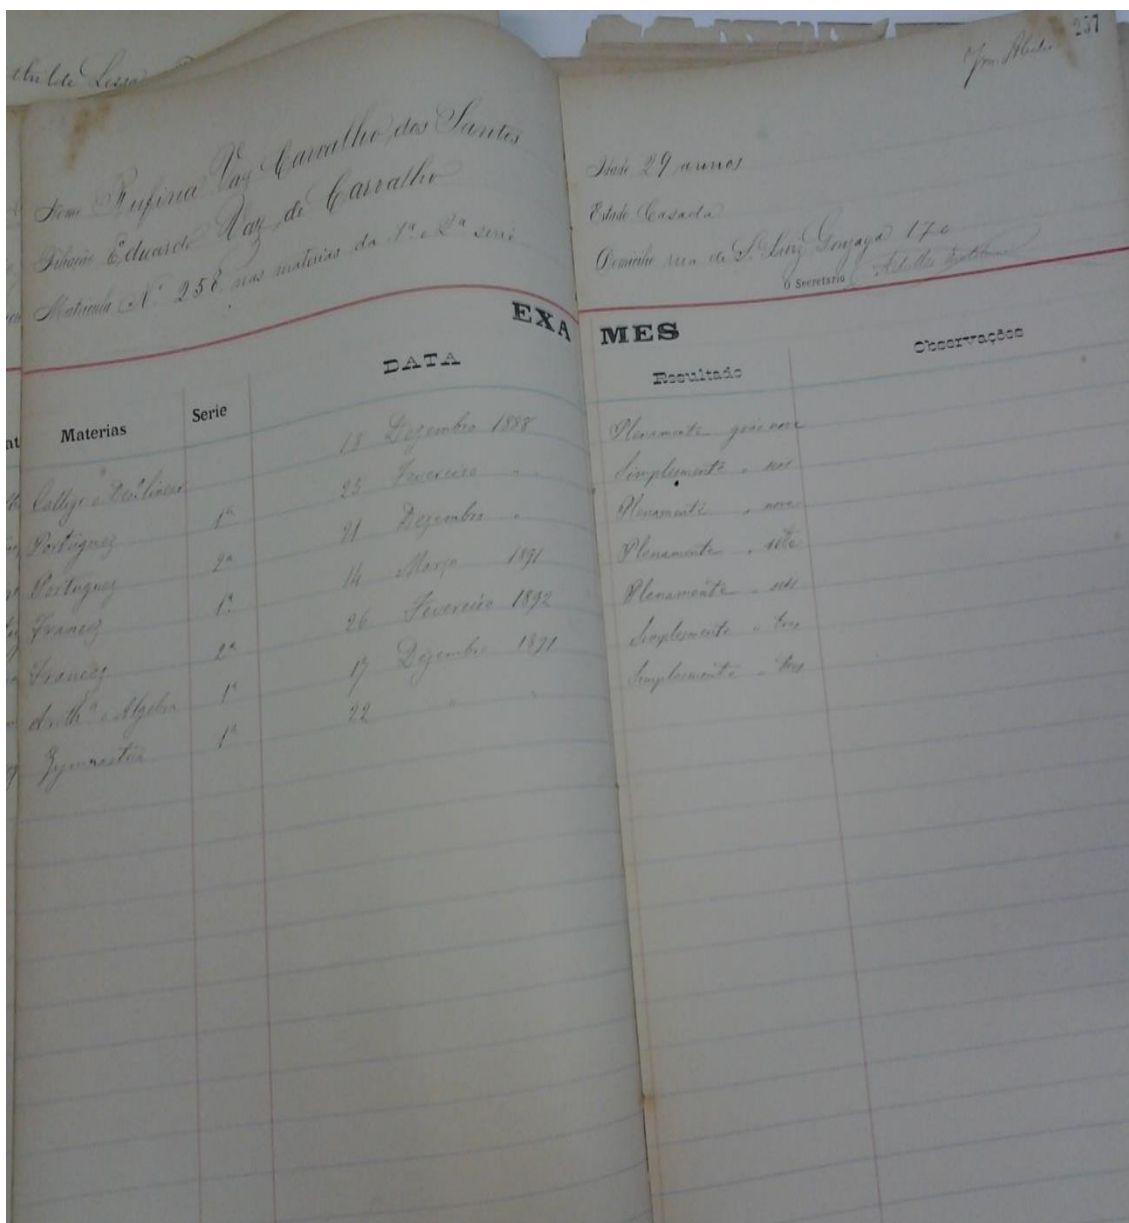 237
Nome Rufina Vaz Carvalho dos Santos
Idade 29 annos
Filiação Eduardo Vaz de Carvalho
Estado Casada
Matricula Nº 258 nas materias da 1ª e 2ª serie
Domicilio rua de S. Luiz Gonzaga 170
O Secretario
EXAMES
Materias Serie DATA Resultado Observações
18 Dezembro 1888 Plenamente gráo nove
Portuguez 1ª 25 Fevereiro " Simplesmente " seis
Portuguez 2ª 21 Dezembro " Plenamente " nove
Francez 1ª 14 Março 1891 Plenamente " sete
Francez 2ª 26 Fevereiro 1892 Plenamente " seis
Arithª e Algebra 1ª 17 Dezembro 1891 Simplesmente " tres
Gymnastica 1ª 22 " " Simplesmente " tres